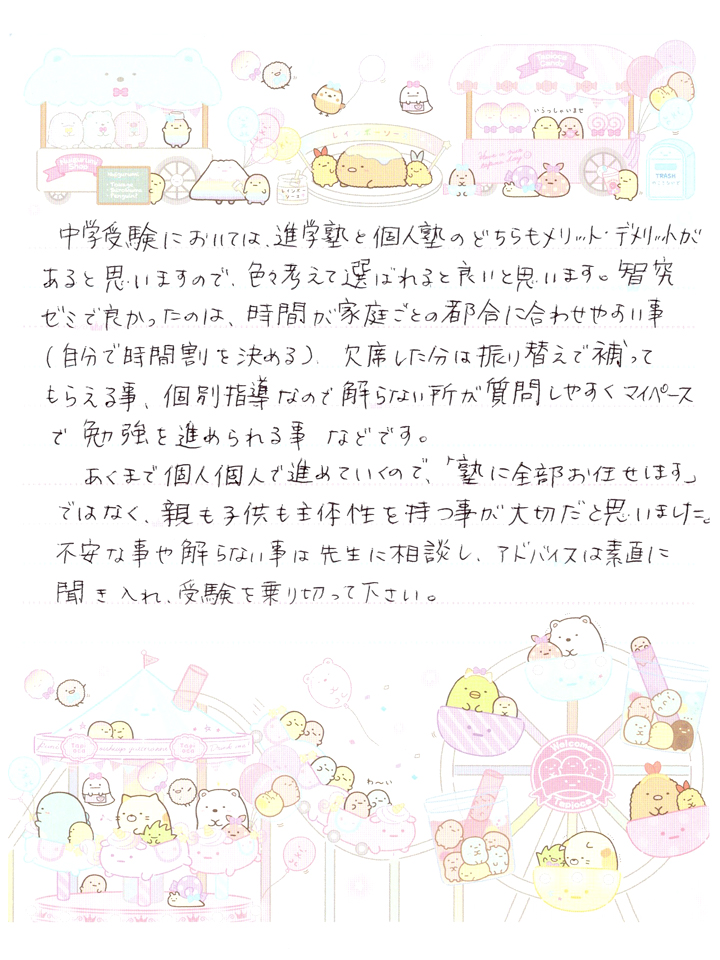 いらっしゃいませ
レインボーソース
TRASH
中学受験においては、進学塾と個人塾のどちらもメリット・デメリットが
あると思いますので、色々考えて選ばれると良いと思います。智究
ゼミで良かったのは、時間が家庭ごとの都合に合わせやすい事
(自分で時間割を決める)、欠席した分は振り替えで補って
もらえる事、個別指導なので解らない所が質問しやすくマイペース
で勉強を進められる事などです。
あくまで個人個人で進めていくので、「塾に全部お任せします」
ではなく、親も子供も主体性を持つ事が大切だと思いました。
不安な事や解らない事は先生に相談し、アドバイスは素直に
聞き入れ、受験を乗り切って下さい。
わ〜い
Welcome
Tapioca